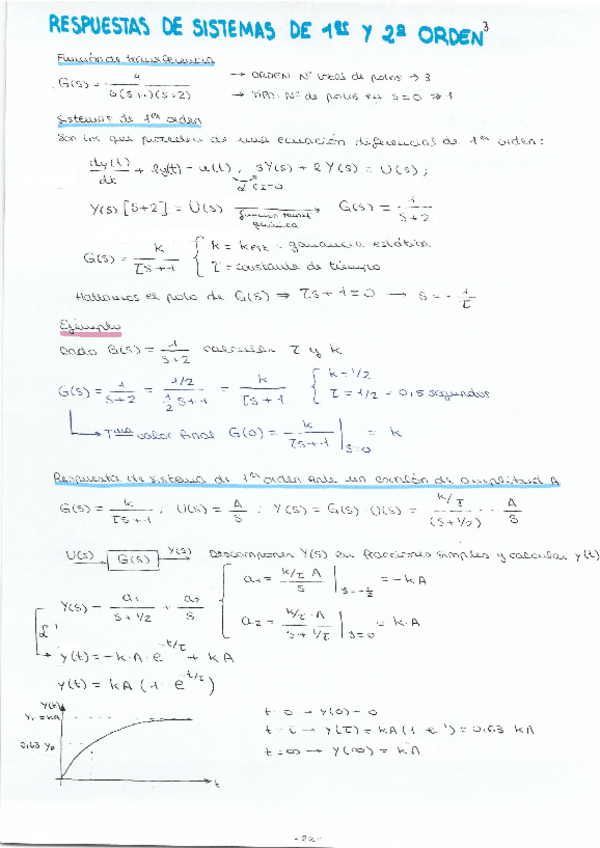 RESPUESTAS DE SISTEMAS DE 1er Y 2º ORDEN 3
Función de transferencia
G(s) = 4 / s(s+1)(s+2) → ORDEN: Nº total de polos → 3
→ TIPO: Nº de polos en s=0 ⇒ 1
Sistemas de 1er orden
Son los que proceden de una ecuación diferencial de 1er orden:
dy(t)/dt + 2y(t) = u(t), sY(s) + 2Y(s) = U(s);
Y(s)[s+2] = U(s) → G(s) = 1/(s+2)
G(s) = k/(τs+1) { k = kest = ganancia estática
τ = constante de tiempo
Hallamos el polo de G(s) ⇒ τs+1=0 → s = -1/τ
Ejemplo
Dado G(s) = 1/(s+2) calcular τ y k
G(s) = 1/(s+2) = (1/2)/(1/2 s+1) = k/(τs+1) { k = 1/2
τ = 1/2 = 0,5 segundos
→ Tma valor final G(0) = k/(τs+1) | s=0 = k
Respuesta de sistema de 1er orden ante un escalón de amplitud A
G(s) = k/(τs+1), U(s) = A/s; Y(s) = G(s)·U(s) = (k/τ)/(s+1/τ) · A/s
U(s) → G(s) → Y(s) Descomponer Y(s) en fracciones simples y calcular y(t)
Y(s) = a1/(s+1/τ) + a2/s { a1 = (k/τ A)/s | s=-1/τ = -kA
a2 = (k/τ · A)/(s+1/τ) | s=0 = k·A
y(t) = -k·A·e^(-t/τ) + kA
y(t) = kA(1-e^(-t/τ))
t=0 → y(0)=0
t=τ → y(τ) = kA(1-e^-1) = 0,63 kA
t=∞ → y(∞) = kA
y(t)
0,63
t
-22-